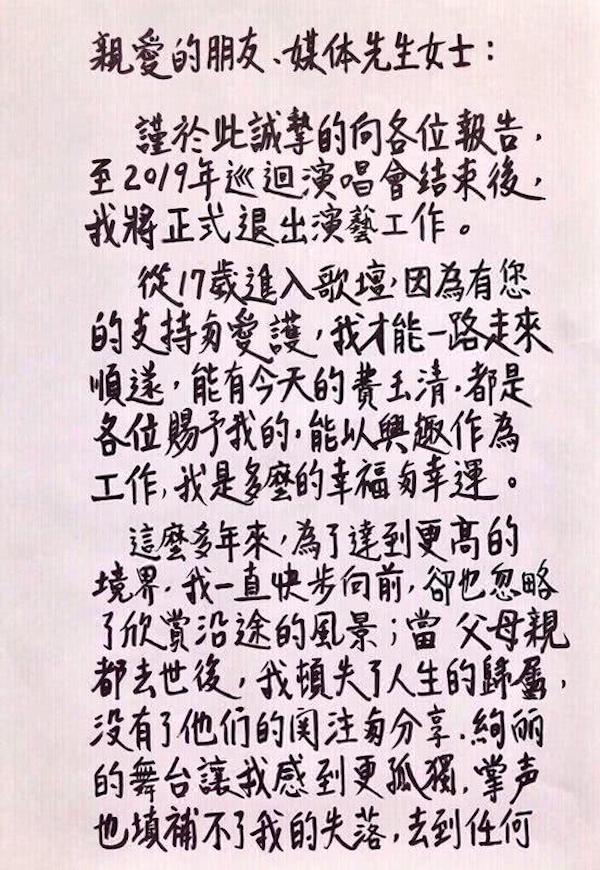 親愛的朋友、媒体先生女士：
謹於此誠摯的向各位報告，
至2019年巡迴演唱會结束後，
我將正式退出演藝工作。
從17歲進入歌壇，因為有您
的支持与愛護，我才能一路走來
順遂，能有今天的費玉清，都是
各位賜予我的，能以興趣作為
工作，我是多麼的幸福与幸運。
這麼多年來，為了達到更高的
境界，我一直快步向前，卻也忽略
了欣賞沿途的風景；當 父母親
都去世後，我頓失了人生的歸屬，
没有了他们的関注与分享，絢丽
的舞台讓我感到更孤獨，掌声
也填補不了我的失落，去到任何